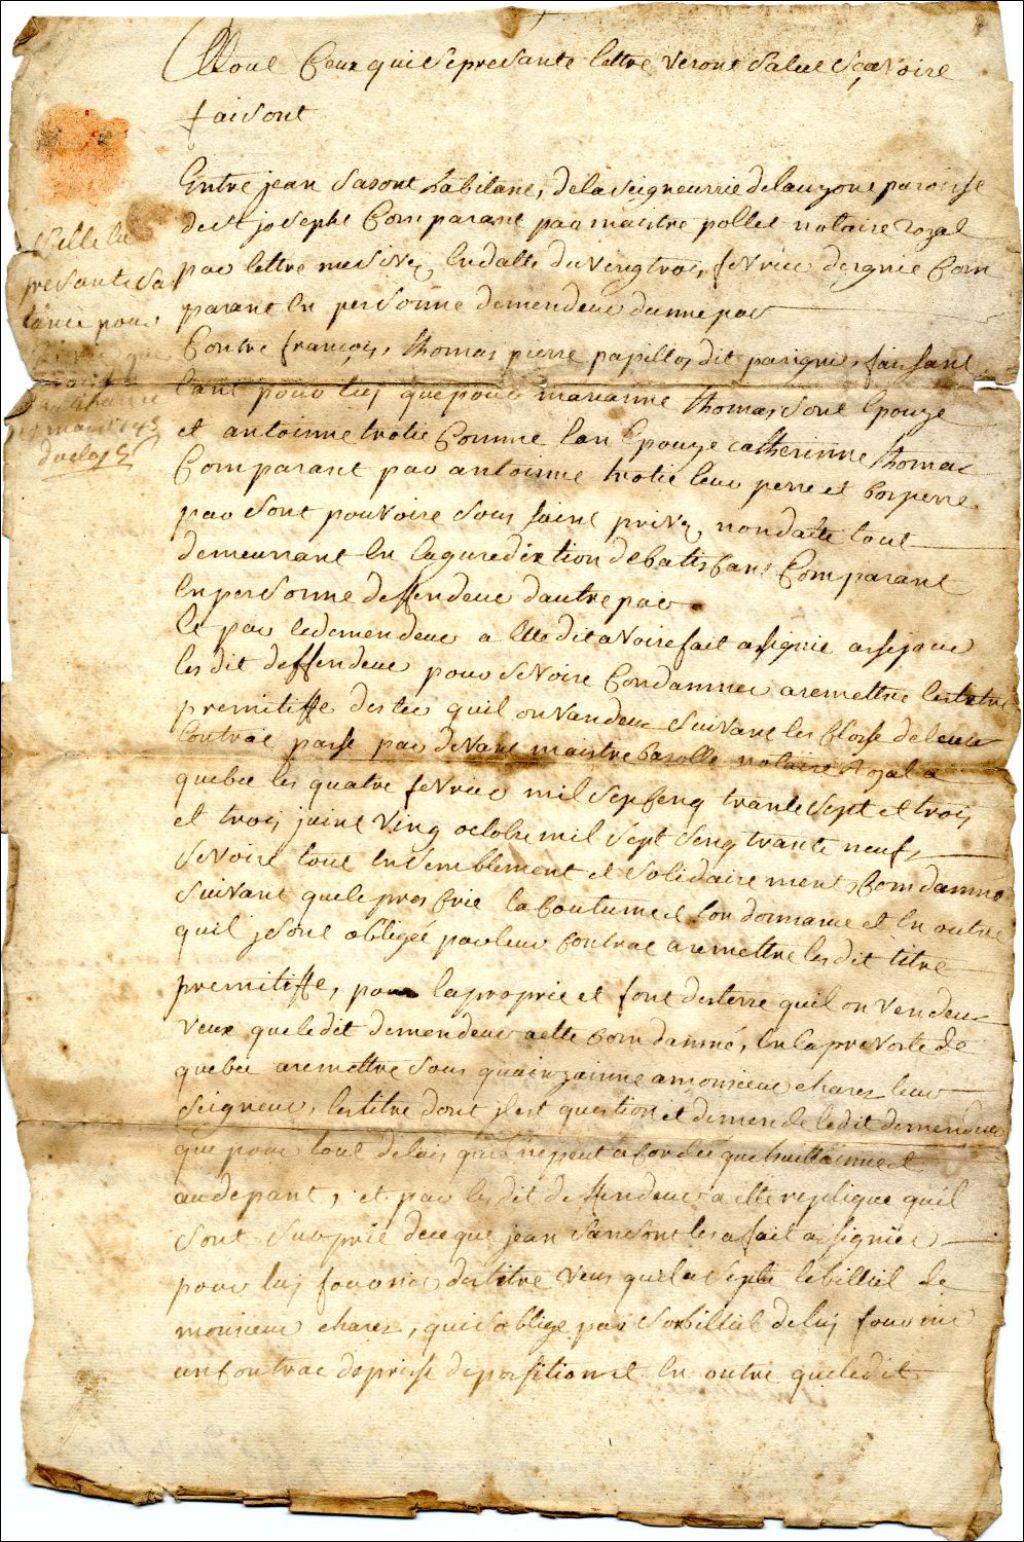 A Tout Ceux qui se presante lettre veront salue sçavoire
faisont
Entre jean sasont habitant, de la seigneurrie de lauzont paroisse
de st josephe Comparant par maistre pollet notaire royal
par lettre missive, en datte du vengtrois fevrier designie Com
parant en personne demendeur dunne par
Contre françois, thomas pierre papillos dit parigni, faissant
tant pour luy que pour marianne thomas sont Epouze
et antoinne trotie Comme lon Epouze catherinne thomas
Comparant par antoinne trotie leur perre et boxperre
par sont pouvoire sous saint privez, nondatte tout
demeurant en la guredixtion de batisCant Comparant
en personne deffendeur dautre par
Et par ledemendeur a Ette dit avoire fait assignie assejour
les dit deffendeur pour se voire Condamner aremettre les titre
premitiffe des ter quil on vandeu suivant les Closse de leur
Contrac passe par devant maistre barolle notaire royal a
quebec les quatre fevrier mil sepCeng trante sept et trois
et trois juint ving octobre mil sept seng trante neuf,
se voire tout ensemblement et solidairement Comdamné
suivant que le presCrie la Coutume et lordonnance et en outre
quil y sont obligée par leur Contrac aremettre les dit titre
premitiffe, pour la proprie et font desterre quil on vendeu
veux que ledit demendeur a ette Comdamné, en la prevoste de
quebec aremettre sous quinzainne a monsieur charez leur
seigneur, les titre dont il est question et demende le dit demendeur
que pour tout delais qui ne peut aCordée que huittainne et
au depant, et par les dit deffendeur a ette replique quil
sont surprie de ce que jean sansont les a fait assignier
pour luy fournir des titre veus quil a septe le billiet de
monsieur charez, qui soblige par son billiet de luy fournir
un Contrac de prisse deposition et en outre que le dit
selle la
presante sa
tance pour